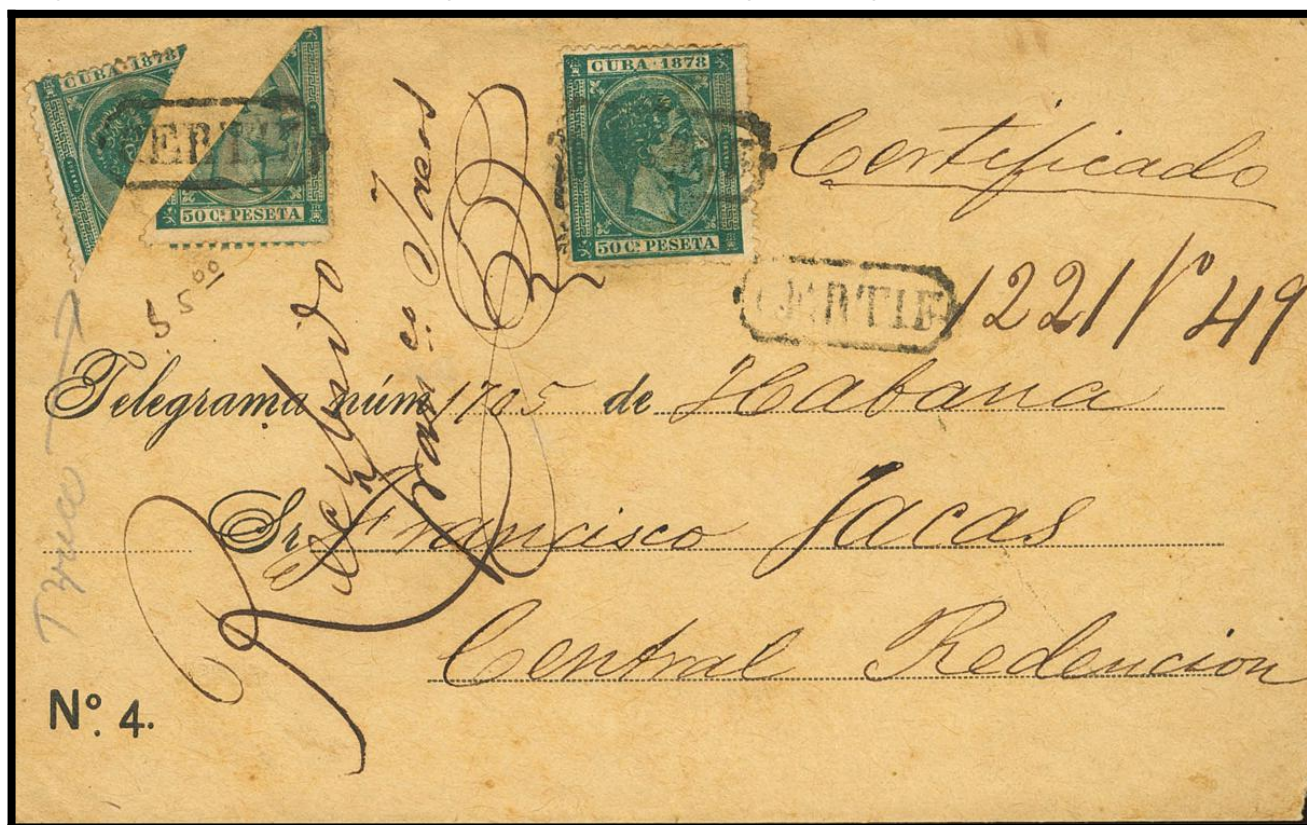 CUBA · 1878
50 Cs PESETA
CERTIF
CUBA · 1878
50 Cs PESETA
Certificado
CERTIF
1221
49
5 5 00
Recibido
Telegrama núm 1705 de Habana
Sr Francisco Jacas
Central Redencion
Nº. 4.